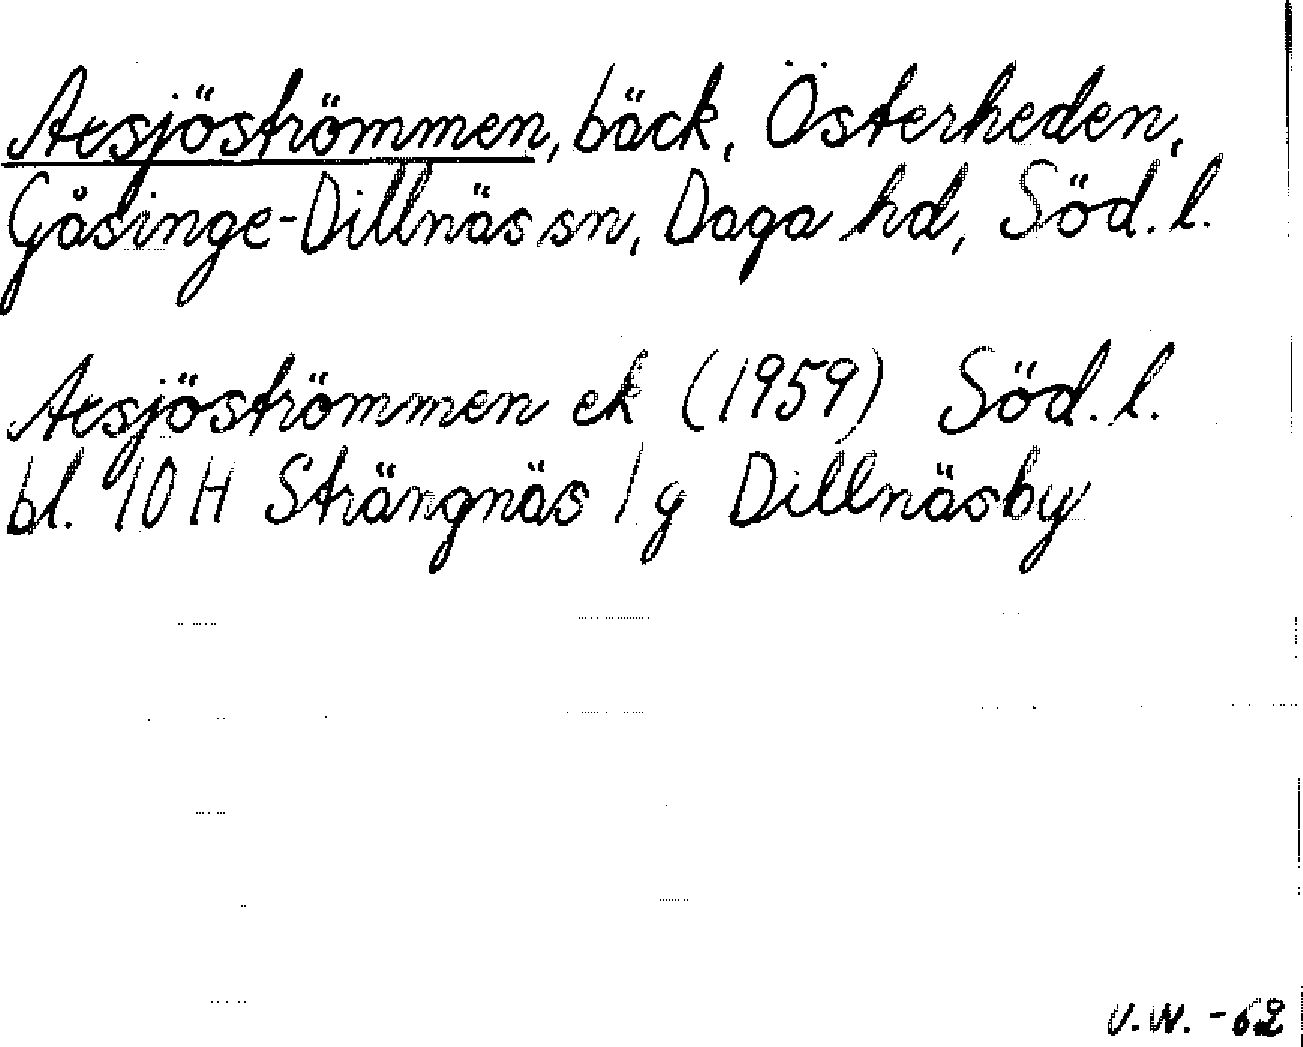 Axsjöströmmen, bäck, Österheden,
Gåsinge-Dillnäs sn, Daga hd, Söd. l.
Axsjöströmmen ek (1959) Söd. l.
bl. 10 H Strängnäs 1 g Dillnäsby
U.W. -62